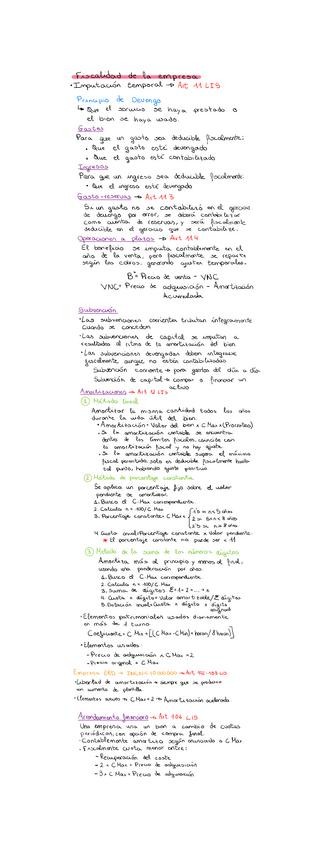 Fiscalidad de la empresa
• Imputación temporal → Art 11 LIS
Principio de Devengo
↳ Que el servicio se haya prestado o
el bien se haya usado.
Gastos
Para que un gasto sea deducible fiscalmente:
• Que el gasto esté devengado
• Que el gasto esté contabilizado
Ingresos
Para que un ingreso sea deducible fiscalmente:
• Que el ingreso esté devengado
Gasto-reservas → Art 11.3
Si un gasto no se contabilizó en el ejercicio
de devengo por error, se deberá contabilizar
como cuenta de reservas, y será fiscalmente
deducible en el ejercicio que se contabilice.
Operaciones a plazos → Art 11.4
El beneficio se imputa contablemente en el
año de la venta, pero fiscalmente se reparte
según los cobros, generando ajustes temporales.
Bº = Precio de venta - VNC
VNC = Precio de adquisición - Amortización
Acumulada
Subvención
• Las subvenciones corrientes tributan íntegramente
cuando se conceden
• Las subvenciones de capital se imputan a
resultados al ritmo de la amortización del bien
• Las subvenciones devengadas deben integrarse
fiscalmente, aunque no estén contabilizadas
Subvención corriente → para gastos del día a día
Subvención de capital → comprar o financiar un
activo
Amortizaciones → Art 12 LIS
① Método lineal
Amortizar la misma cantidad todos los años
durante la vida útil del bien
• Amortización = Valor del bien x C Max x (Prorrateo)
• Si la amortización contable se encuentra
dentro de los límites fiscales, coincide con
la amortización fiscal y no hay ajuste
• Si la amortización contable supera el máximo
fiscal permitido, solo es deducible fiscalmente hasta
tal punto, habiendo ajuste positivo
② Método de porcentaje constante
Se aplica un porcentaje fijo sobre el valor
pendiente de amortizar
1. Busco el C Max correspondiente
2. Calcula n = 100/C Max
3. Porcentaje constante = C Max x
1'5 si n < 5 años
2 si 5 ≤ n < 8 años
2'5 si n ≥ 8 años
4. Cuota anual = Porcentaje constante x Valor pendiente
* el porcentaje constante no puede ser < 11
③ Método de la suma de los números dígitos
Amortizas más al principio y menos al final,
usando una ponderación por años
1. Busco el C Max correspondiente
2. Calcula n = 100/C Max
3. Suma de dígitos Σ = 1 + 2 + ... + n
4. Cuota x dígito = Valor amortizable / Σ dígitos
5. Dotación anual = Cuota x dígito x dígito
asignado
• Elementos patrimoniales usados diariamente
en más de 1 turno
Coeficiente = C Min + [(C Max - C Min) x horas / 8 horas]
• Elementos usados:
- Precio de adquisición x C Max x 2
- Precio original x C Max
Empresa ERD → INCN < 10.000.000 → Art 102-103 LIS
• Libertad de amortización → siempre que se produzca
un aumento de plantilla
• Elementos nuevos → C Max x 2 → Amortización acelerada
Arrendamiento financiero → Art 106 LIS
Una empresa usa un bien a cambio de cuotas
periódicas, con opción de compra final.
- Contablemente amortiza según enunciado o C Max
- Fiscalmente cuota menor entre:
- Recuperación del coste
- 2 x C Max x Precio de adquisición
- 3 x C Max x Precio de adquisición